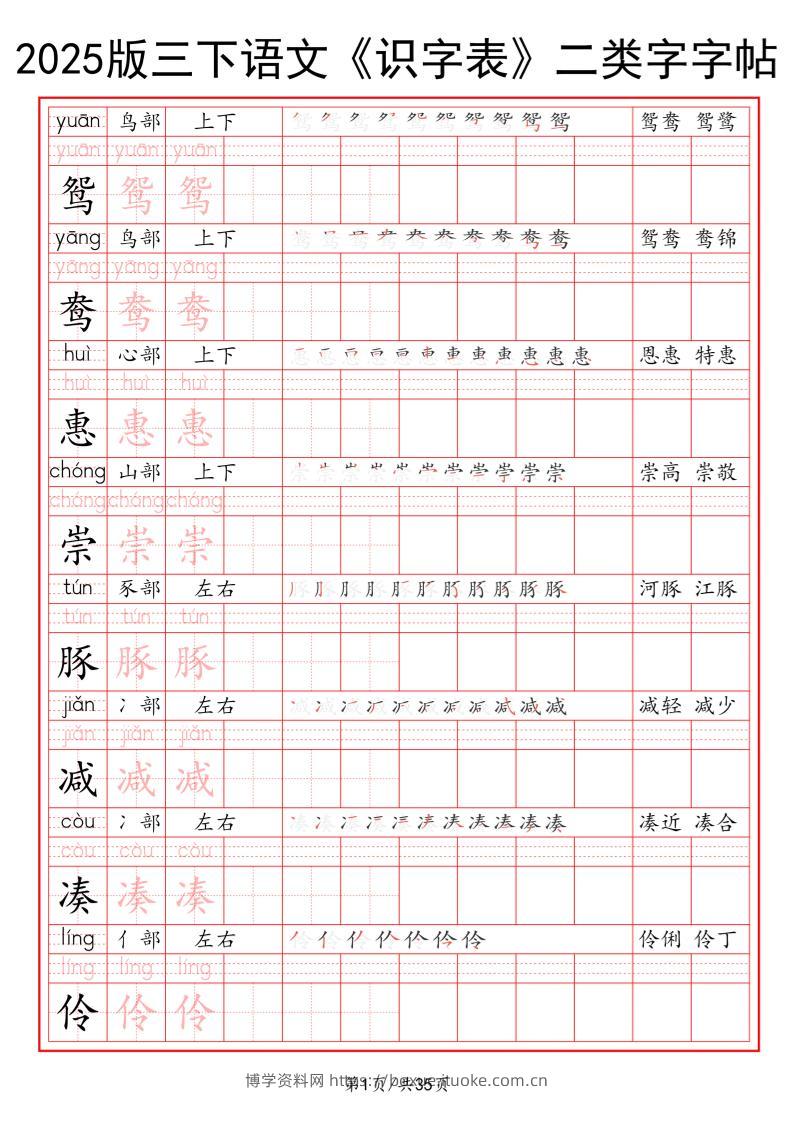 2025版三下语文《识字表》二类字字帖
yuān 鸟部 上下 鸳鸯 鸳鹭
yuān yuān yuān
鸳 鸳 鸳
yāng 鸟部 上下 鸳鸯 鸯锦
yāng yāng yāng
鸯 鸯 鸯
huì 心部 上下 恩惠 特惠
huì huì huì
惠 惠 惠
chóng 山部 上下 崇高 崇敬
chóng chóng chóng
崇 崇 崇
tún 豕部 左右 河豚 江豚
tún tún tún
豚 豚 豚
jiǎn 冫部 左右 减轻 减少
jiǎn jiǎn jiǎn
减 减 减
còu 冫部 左右 凑近 凑合
còu còu còu
凑 凑 凑
líng 亻部 左右 伶俐 伶丁
líng líng líng
伶 伶 伶
博学资料网 https://boxue.ituoke.com.cn
第1页/共35页